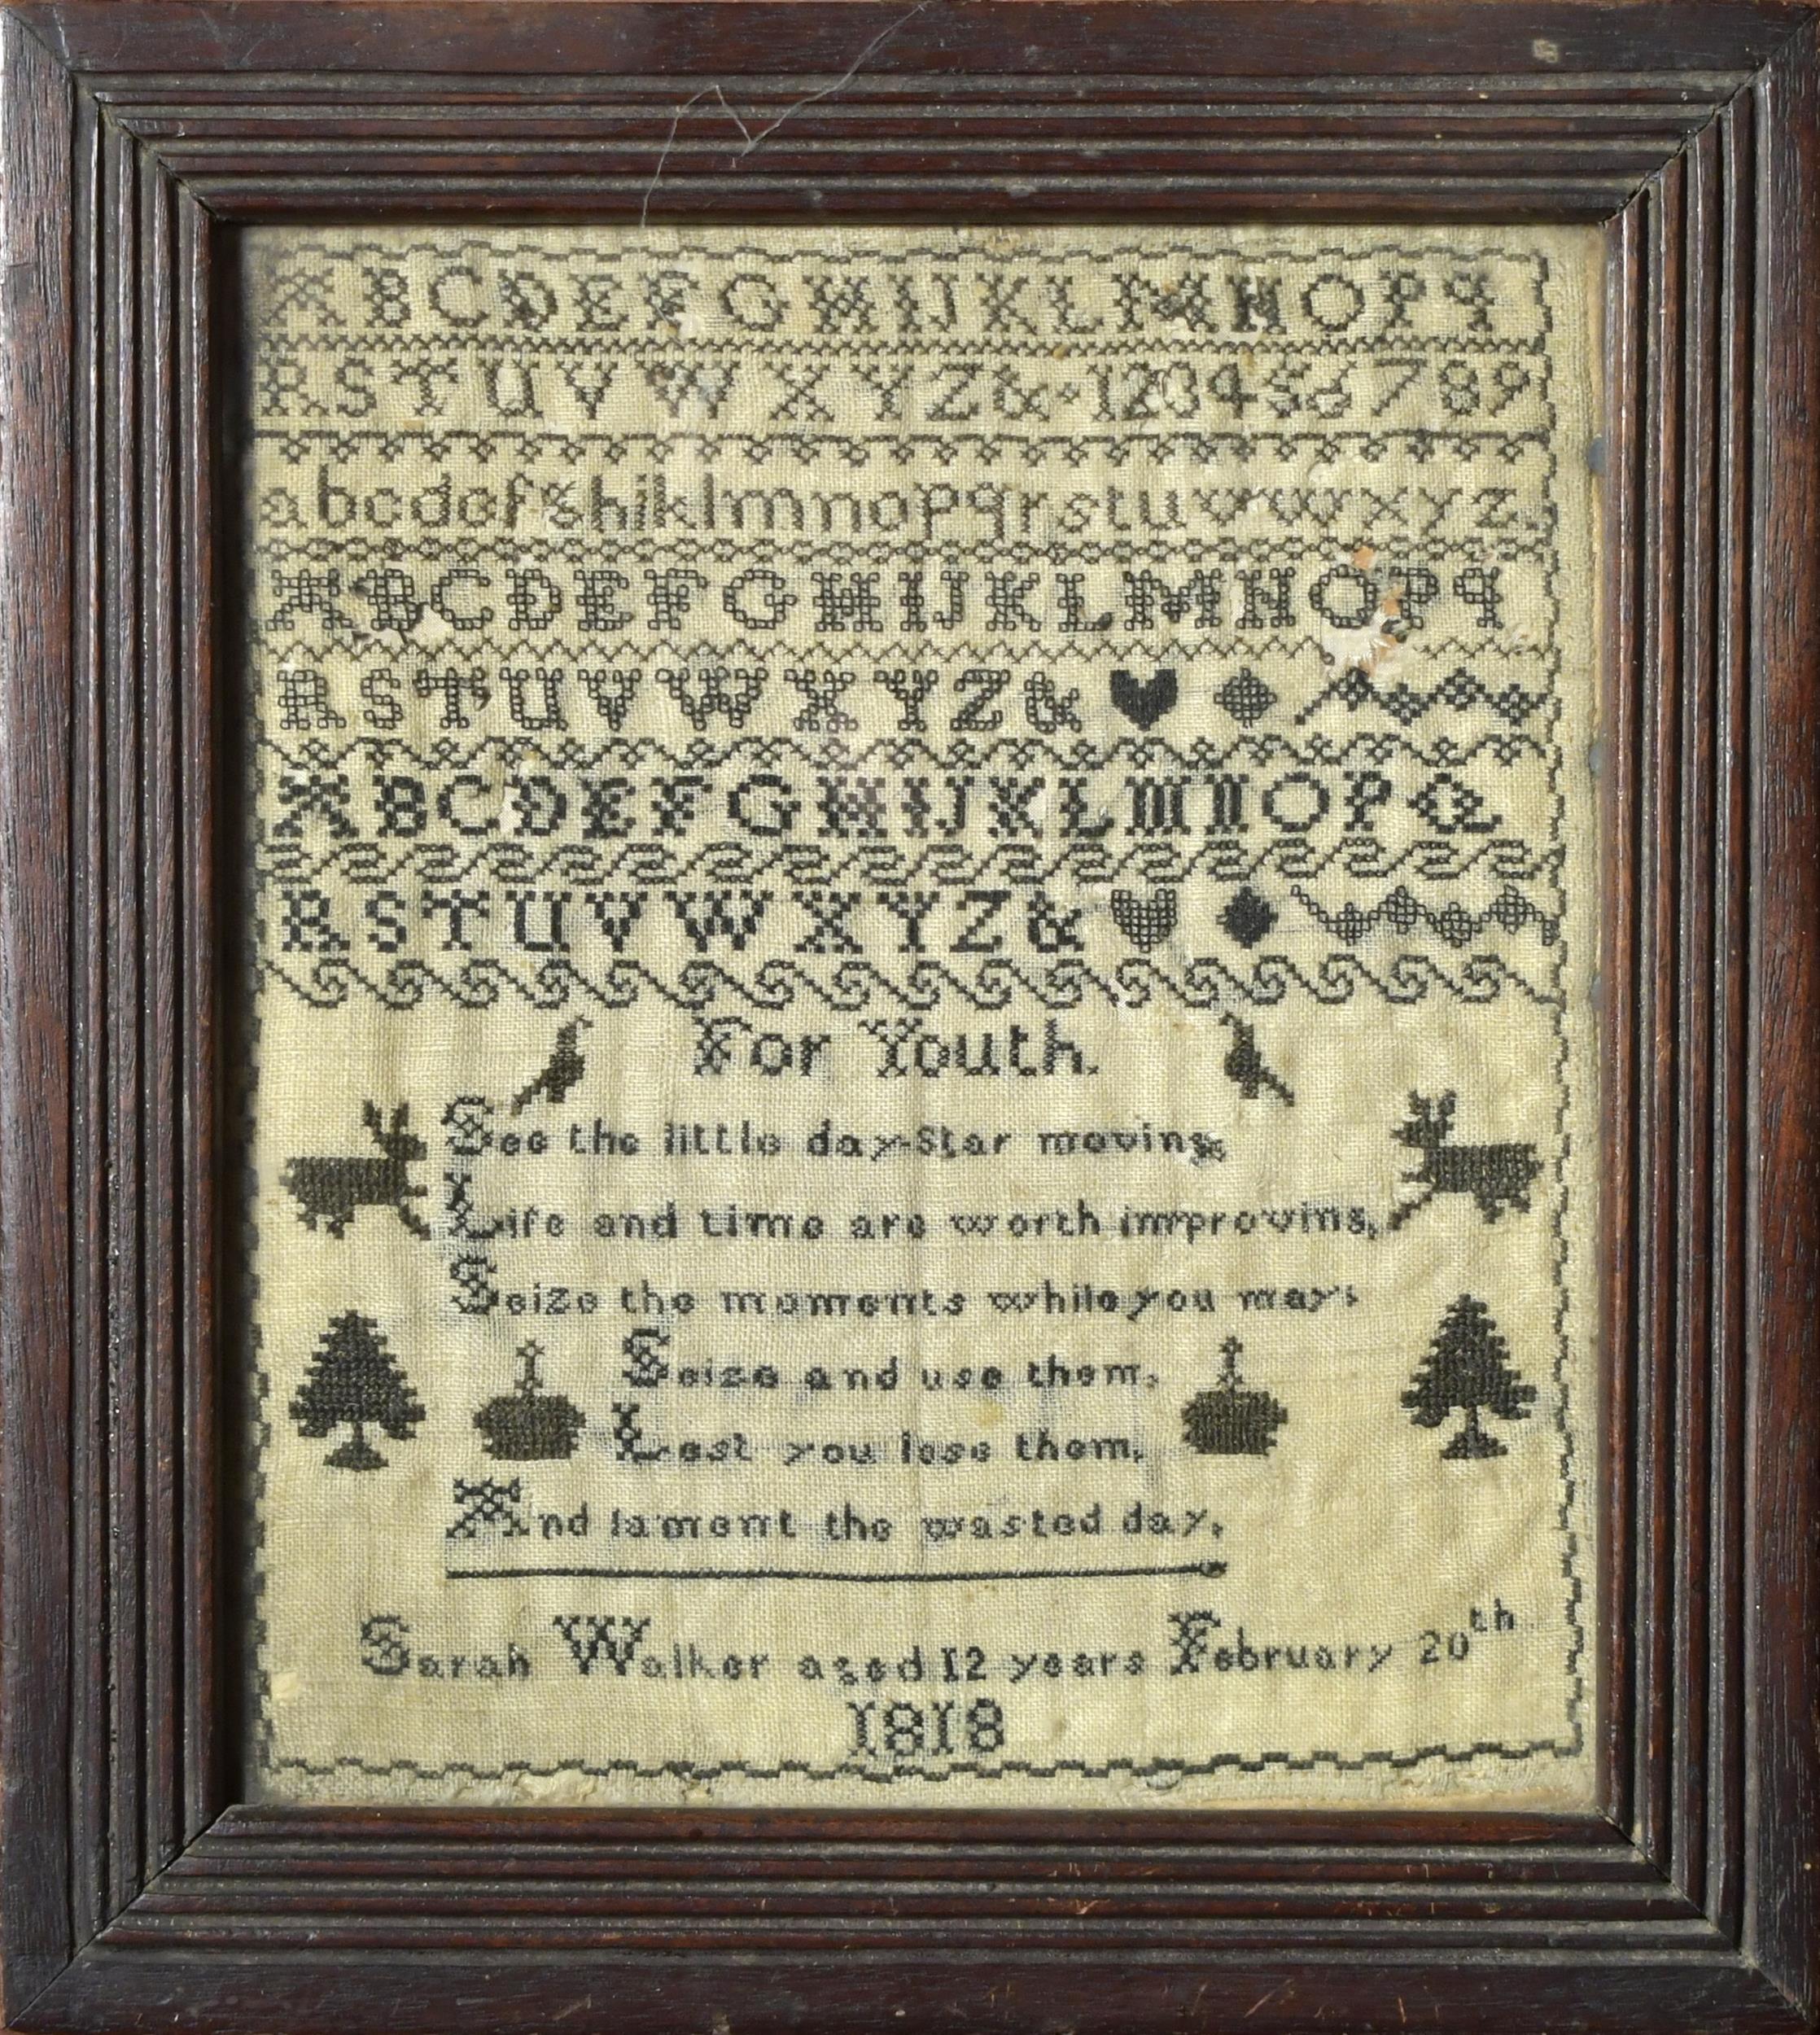 A B C D E F G H I J K L M N O P Q
R S T U V W X Y Z & 1 2 3 4 5 6 7 8 9
a b c d e f g h i k l m n o p q r s t u v w x y z
A B C D E F G H I J K L M N O P Q
R S T U V W X Y Z &
A B C D E F G H I J K L M N O P Q
R S T U V W X Y Z &
For Youth.
See the little day-star moving,
Life and time are worth improving,
Seize the moments while you may:
Seize and use them,
Lest you lose them,
And lament the wasted day,
Sarah Walker aged 12 years February 20th
1818